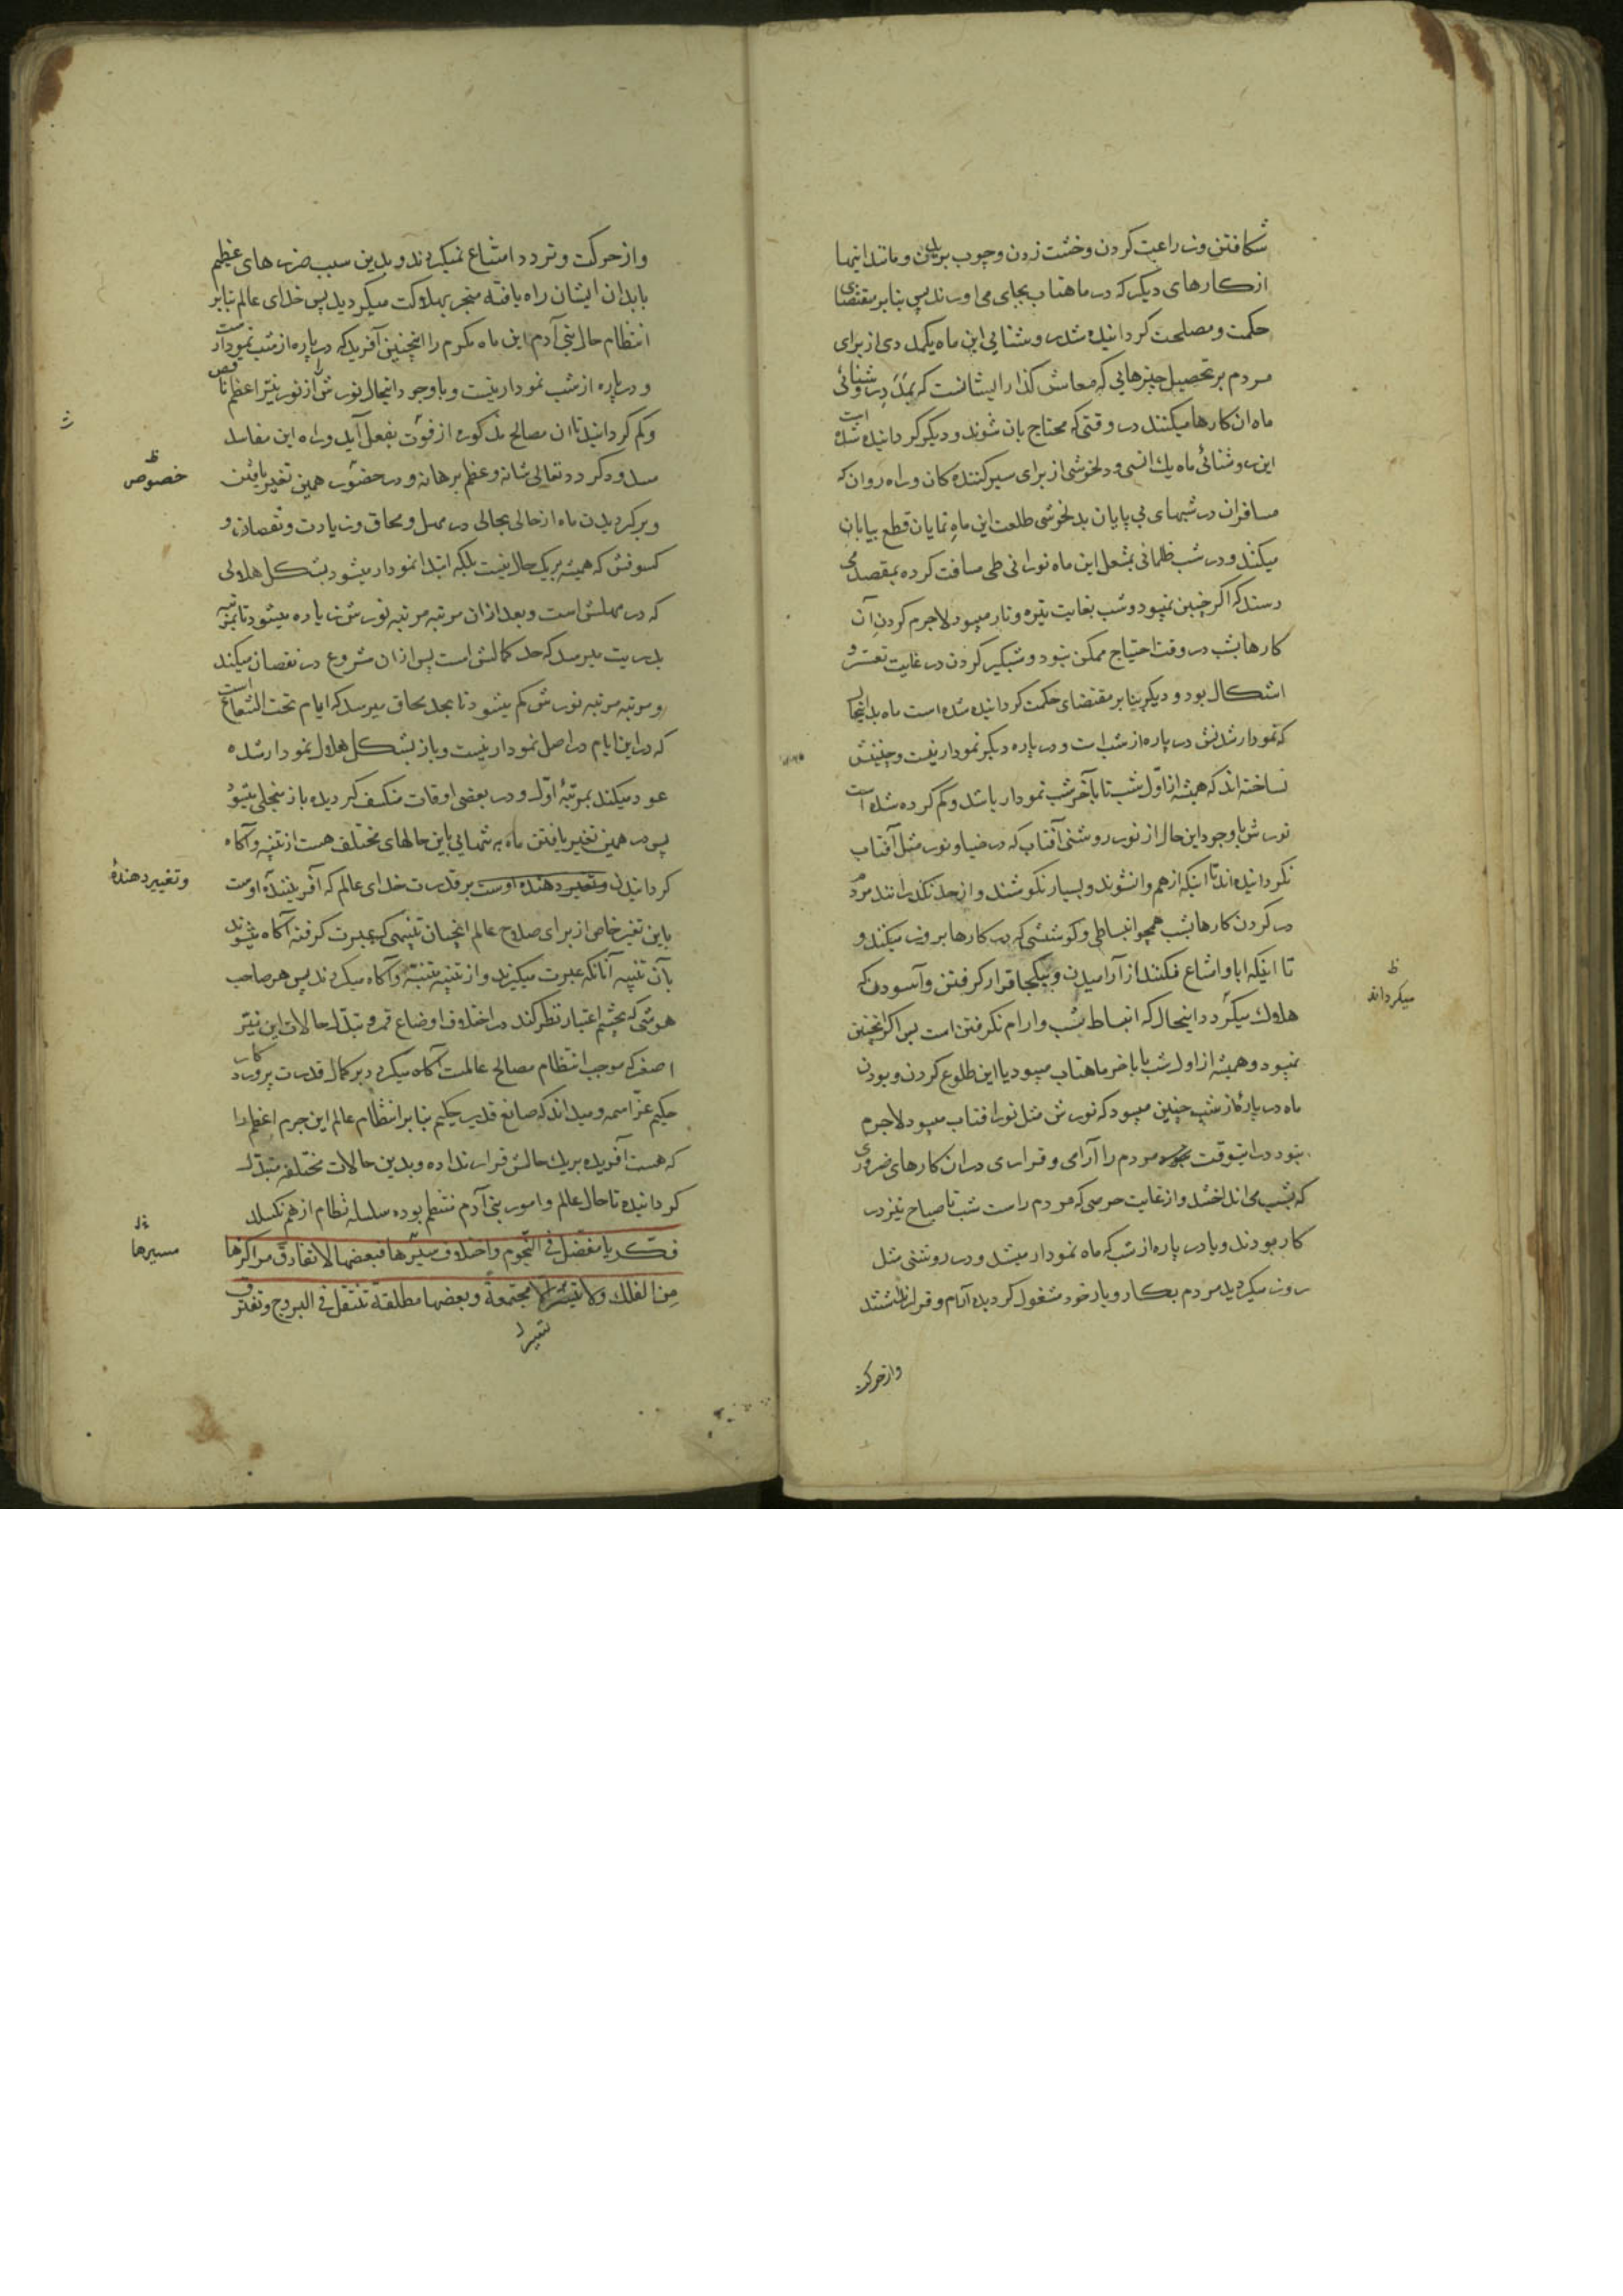 شکافتن و زراعت کردن و خشت زدن و چوب بریدن و مانند اینها
از کارهای دیگر که در ماهتاب بجای می اورند پس بنابر مقتضای
حکمت و مصلحت کردانیده شد روشنایی این ماه یکمددی از برای
مردم بر تحصیل چیزهایی که معاش کذار ایشانست که بمدد روشنائی
ماه ان کارها میکنند در وقتی که محتاج بان شوند و دیگر کردانیده شده است
این روشنائی ماه یک انسی و دلخوشی از برای سیر کننده کان و راه روان که
مسافران در شبهای بی پایان بدلخوشی طلعت این ماه نمایان قطع بیابان
میکنند و در شب ظلمانی بمشعل این ماه نورانی طی مسافت کرده بمقصد می
رسند که اکر چنین نمیبود و شب بغایت تیره و تار میبود لاجرم کردن آن
کارها بشب در وقت احتیاج ممکن نبود و شبکیر کردن در غایت تعسّر و
اشکال بود و دیگر بنابر مقتضای حکمت کردانیده شده است ماه بداینحال
که نمودار شدنش در پاره از شب است و در پاره دیگر نمودار نیست و چنینش
نساخته اند که همیشه از اوّل شب تا بآخر شب نمودار باشد و کم کرده شده است
نورش با وجود این حال از نور روشنی آفتاب که در ضیا و نور مثل آفتاب
نکردانیده اند تا اینکه از هم وانشوند و بسیار نکوشند و از حد نکذرانند مردم
در کردن کارها بشب همچو انبساطی و کوششی که در کارها بروز میکنند و
تا اینکه ابا و امتناع نکنند از آرامیدن و بیکجا قرار کرفتن و آسودن که
هلاک میکردد اینحال که انبساط بشب و ارام نکرفتن است پس اکر اینچنین
نمیبود و همیشه از اول شب تا باخر ماهتاب میبود یا این طلوع کردن و بودن
ماه در پارهٔ از شب چنین میبود که نورش مثل نور افتاب میبود لاجرم
نبود در اینوقت مردم را آرامی و قراری در ان کارهای ضروری
که بشب می انداختند و از غایت حرصی که مردم راست شب تا صباح نیز در
کار بودند و یا در پاره از شب که ماه نمودار میشد و در روشنی مثل
روز میکردید مردم بکار و بار خود مشغول کردیده آرام و قرار نداشتند
وازحرکت
ظ
میکرداند
و از حرکت و تردد امتناع نمیکردند و بدین سبب ضررهای عظیم
بابدان ایشان راه یافته منجر بهلاکت میکردید پس خدای عالم بنابر
انتظام حال بنی آدم این ماه مکرم را اینچنین آفرید که در پاره از شب نمودار است
و در پاره از شب نمودار نیست و با وجود اینحال نورش را از نور نیّر اعظم ناقص
و کم کردانید تا ان مصالح مذکوره از قوّت بفعل آید و راه این مفاسد
مسدود کردد تعالی شانه و عظم برهانه و در حضور همین تغیر یافتن
و برکردیدن ماه از حالی بحالی در مهل و محاق و زیادت و نقصان و
کسوفش که همیشه بریک حال نیست بلکه ابتدا نمودار میشود بشکل هلالی
که در مهلش است و بعد ازان مرتبه مرتبه نورش زیاده میشود تا بمرتبه
بدریت میرسد که حد کمالش است پس ازان شروع در نقصان میکند
و مرتبه مرتبه نورش کم میشود تا بحد محاق میرسد که ایام تحت الشعاع است
که در این ایام در اصل نمودار نیست و باز بشکل هلال نمودار شده
عود میکند بمرتبهٔ اوّل و در بعضی اوقات منکسف کردیده باز منجلی میشود
پس در همین تغیر یافتن ماه به شمایی باین حالهای مختلف هست از تنبیه و آکاه
کردانیدن و تغییر دهنده اوست بر قدرت خدای عالم که آفرینندهٔ اوست
باین تغیر خاص از برای صلاح عالم اینچسان تنبیهی که عبرت کرفته آکاه میشوند
بآن تنبیه آنانکه عبرت میکیرند و از تنبیه متنبّه و آکاه میکردند پس هر صاحب
هوشی که بچشم اعتبار نظر کند در اختلاف اوضاع قمر و تبدّل حالات این نیّر
اصغر که موجب انتظام مصالح عالمست آکاه میکردد بر کمال قدرت پروردکار
حکیم عزّ اسمه و میداند که صانع قدیر حکیم بنابر انتظام عالم این جرم اعظم را
که هست آفریده بریک حالش قرار نداده و بدین حالات مختلفه متبدّل
کردانیده تا حال عالم و امور بنی آدم منتظم بوده سلسله نظام از هم نکسلد
فکّر یا مفضل فی النّجوم و اختلاف سیرها فبعضها لا تفارق مراکزها
مِن الفلک ولا تسیر الا مجتمعةً و بعضها مطلقة تنتقل فی البروج و تفترق
تسیر
ظ
خصوص
وتغییردهندهٔ
مسیرها